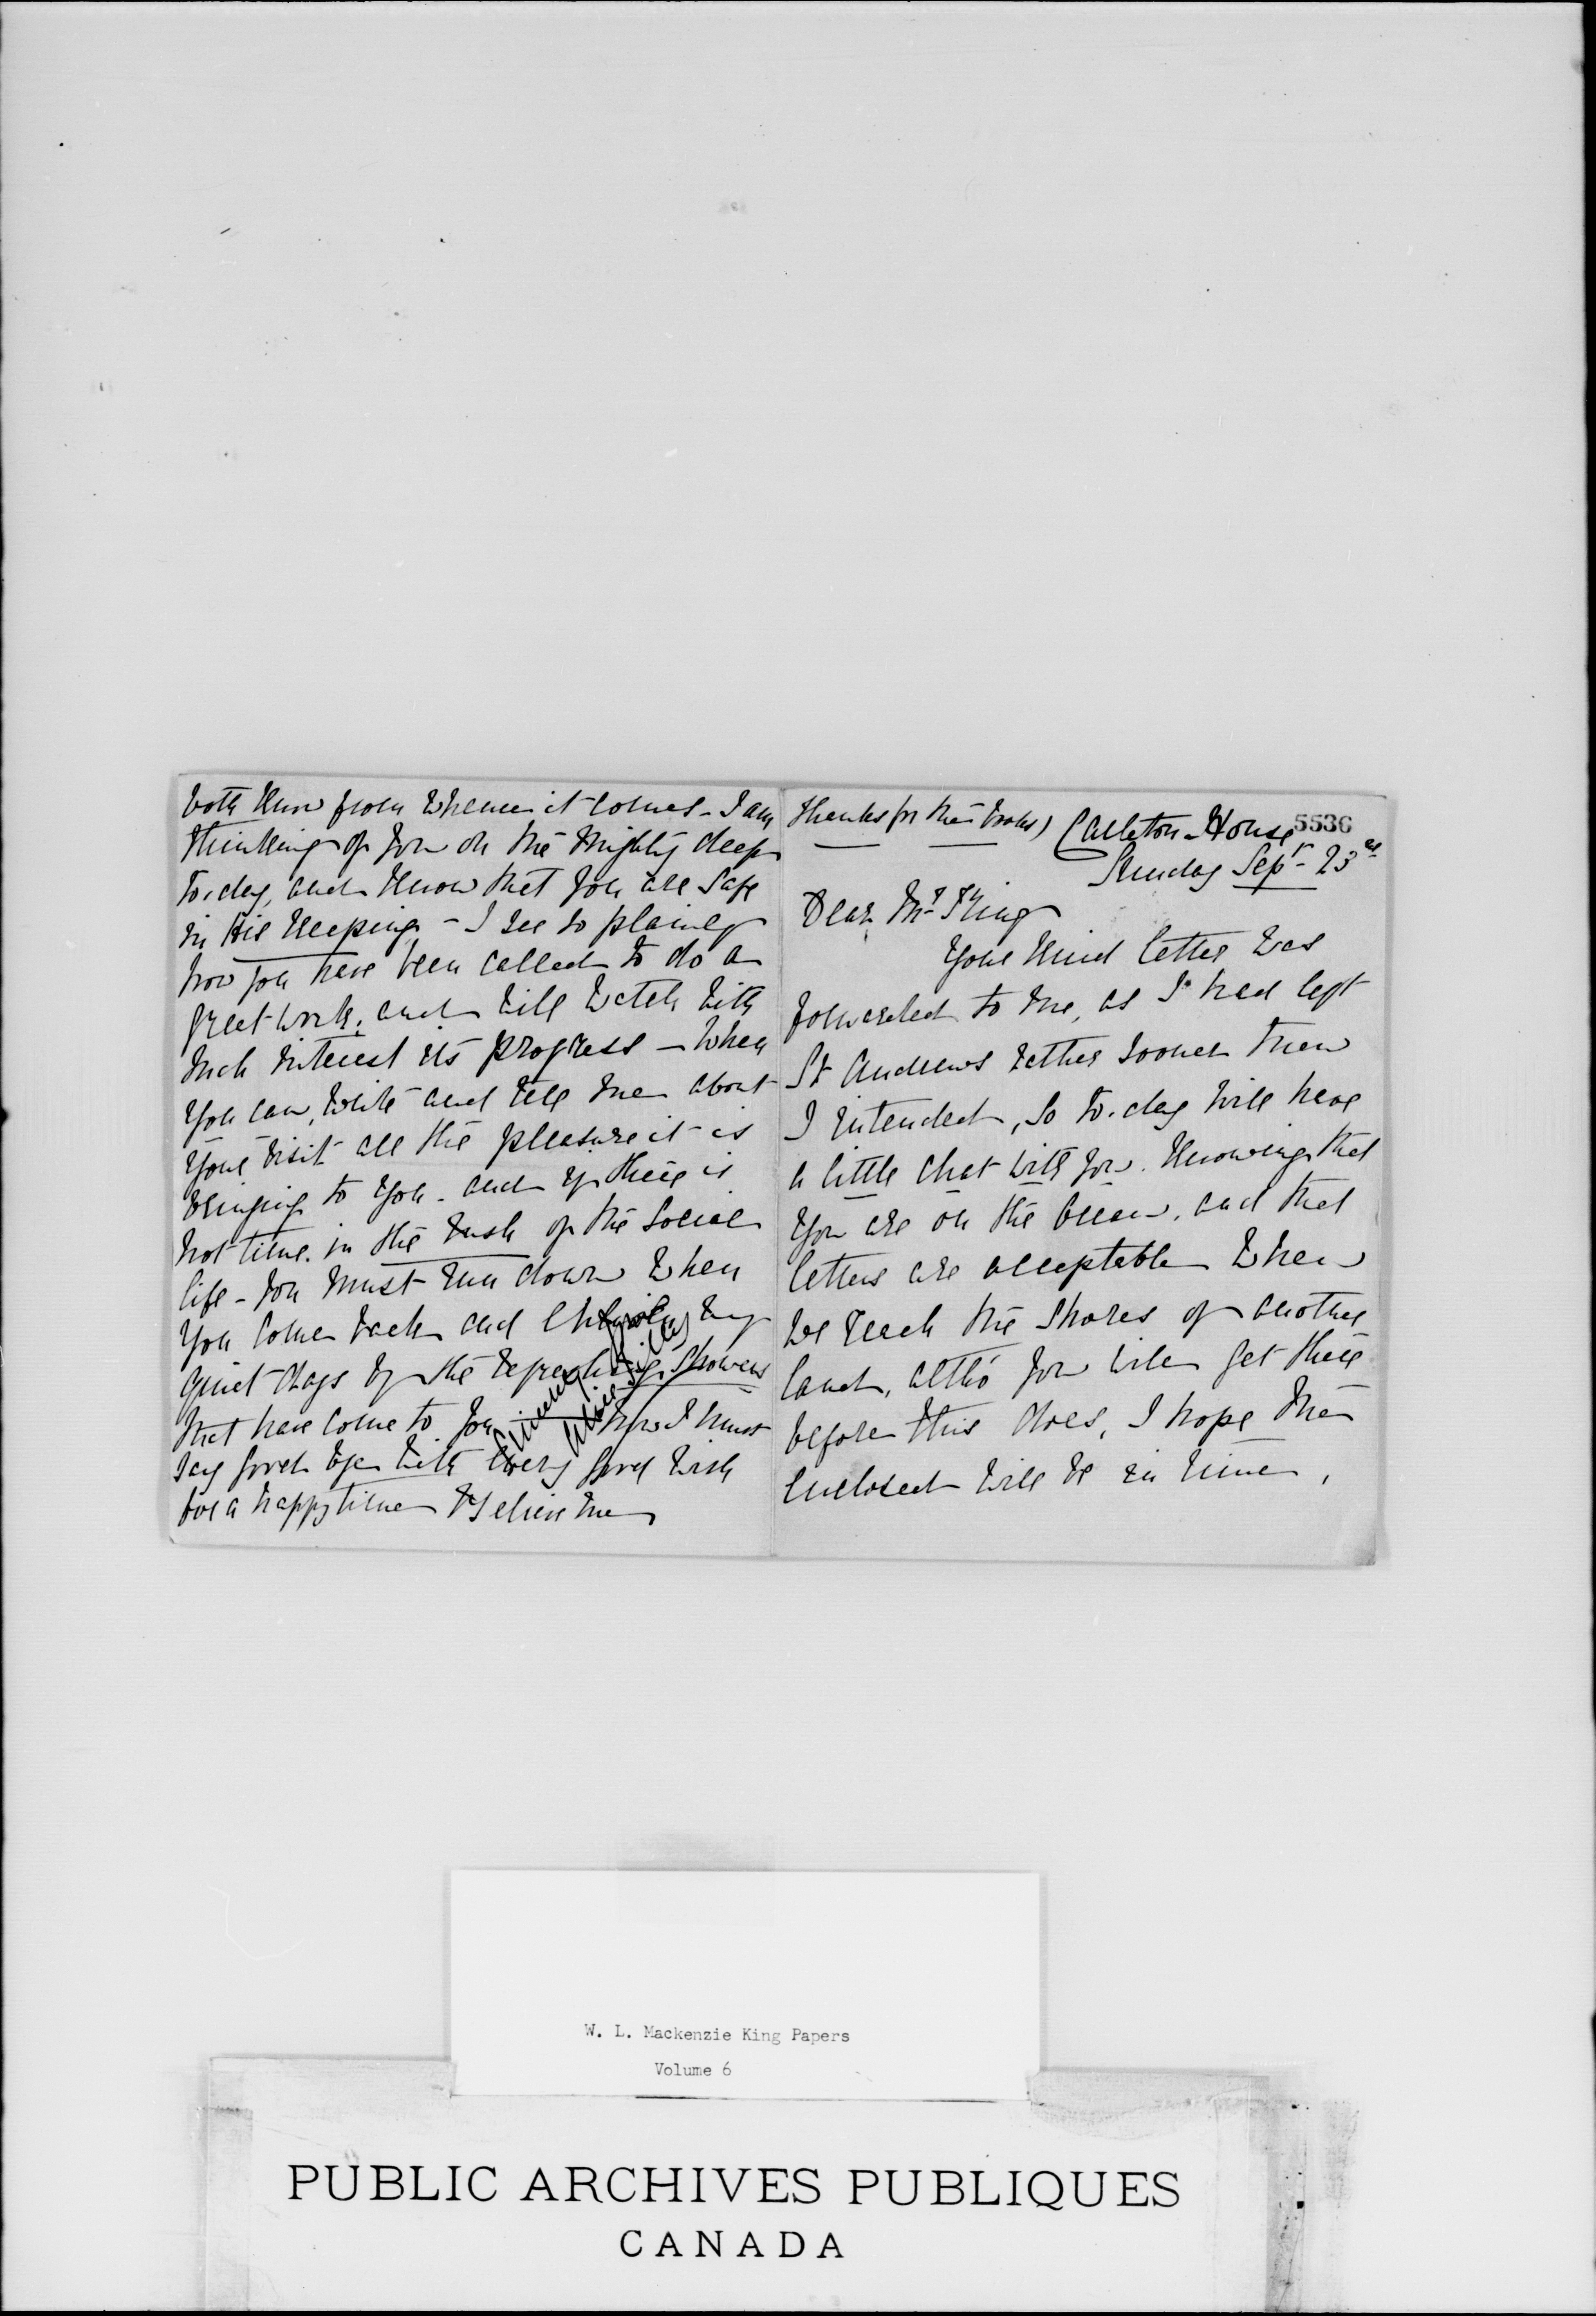 both know from whence it comes - I am
thinking of you on the mighty deep
to-day, and know that you are safe
in His keeping - I see so plainly
how you have been called to do a
great work, and will watch with
much interest its progress - When
you can, write and tell me about
your visit all the pleasure it is
bringing to you - and if there is
not time in the rush of the social
life - you must run down when
you come back and enliven my
quiet days by the refreshing showers
that have come to you - Now I must
say good bye with every good wish
for a happy time Believe me
Sincerely yours
thanks for the books) Carleton House 5536
Sunday Sepr 23rd
Dear Mr King
Your kind letter was
forwarded to me, as I had left
St Andrews rather sooner than
I intended, so to-day will have
a little chat with you. Knowing that
you are on the ocean, and that
letters are acceptable when
we reach the shores of another
land, altho' you will get there
before this does, I hope the
enclosed will be in time,
W. L. Mackenzie King Papers
Volume 6
PUBLIC ARCHIVES PUBLIQUES
CANADA